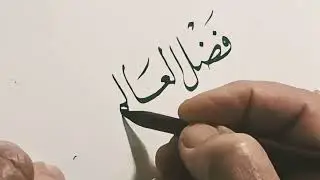 فَضْل العَالم